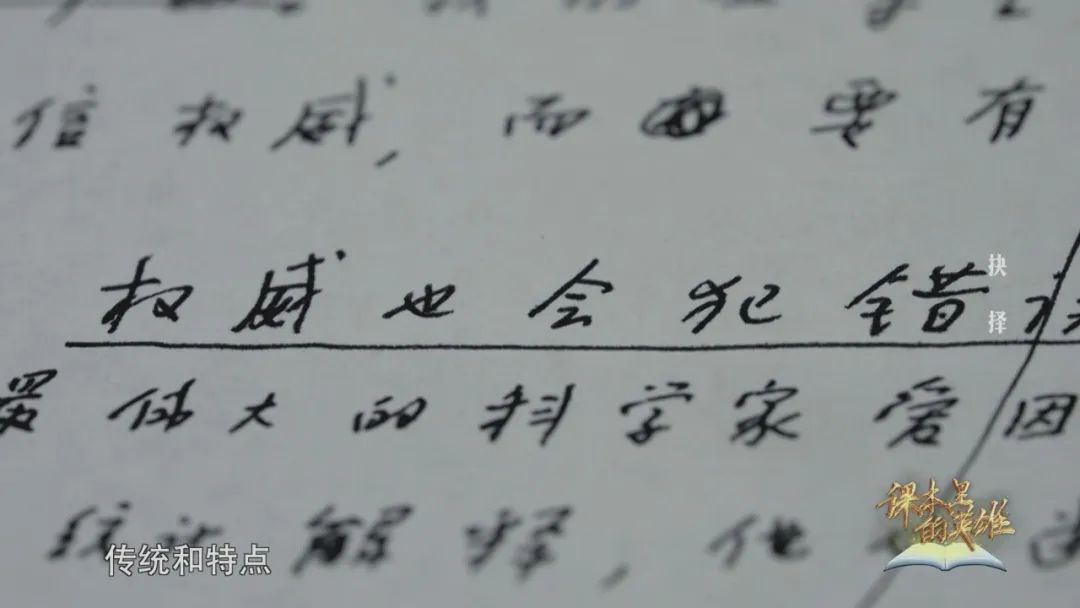 信权威，而要有
权威也会犯错误
最伟大的科学家爱因
统计解释，他
抉择
传统和特点
课本里的英雄